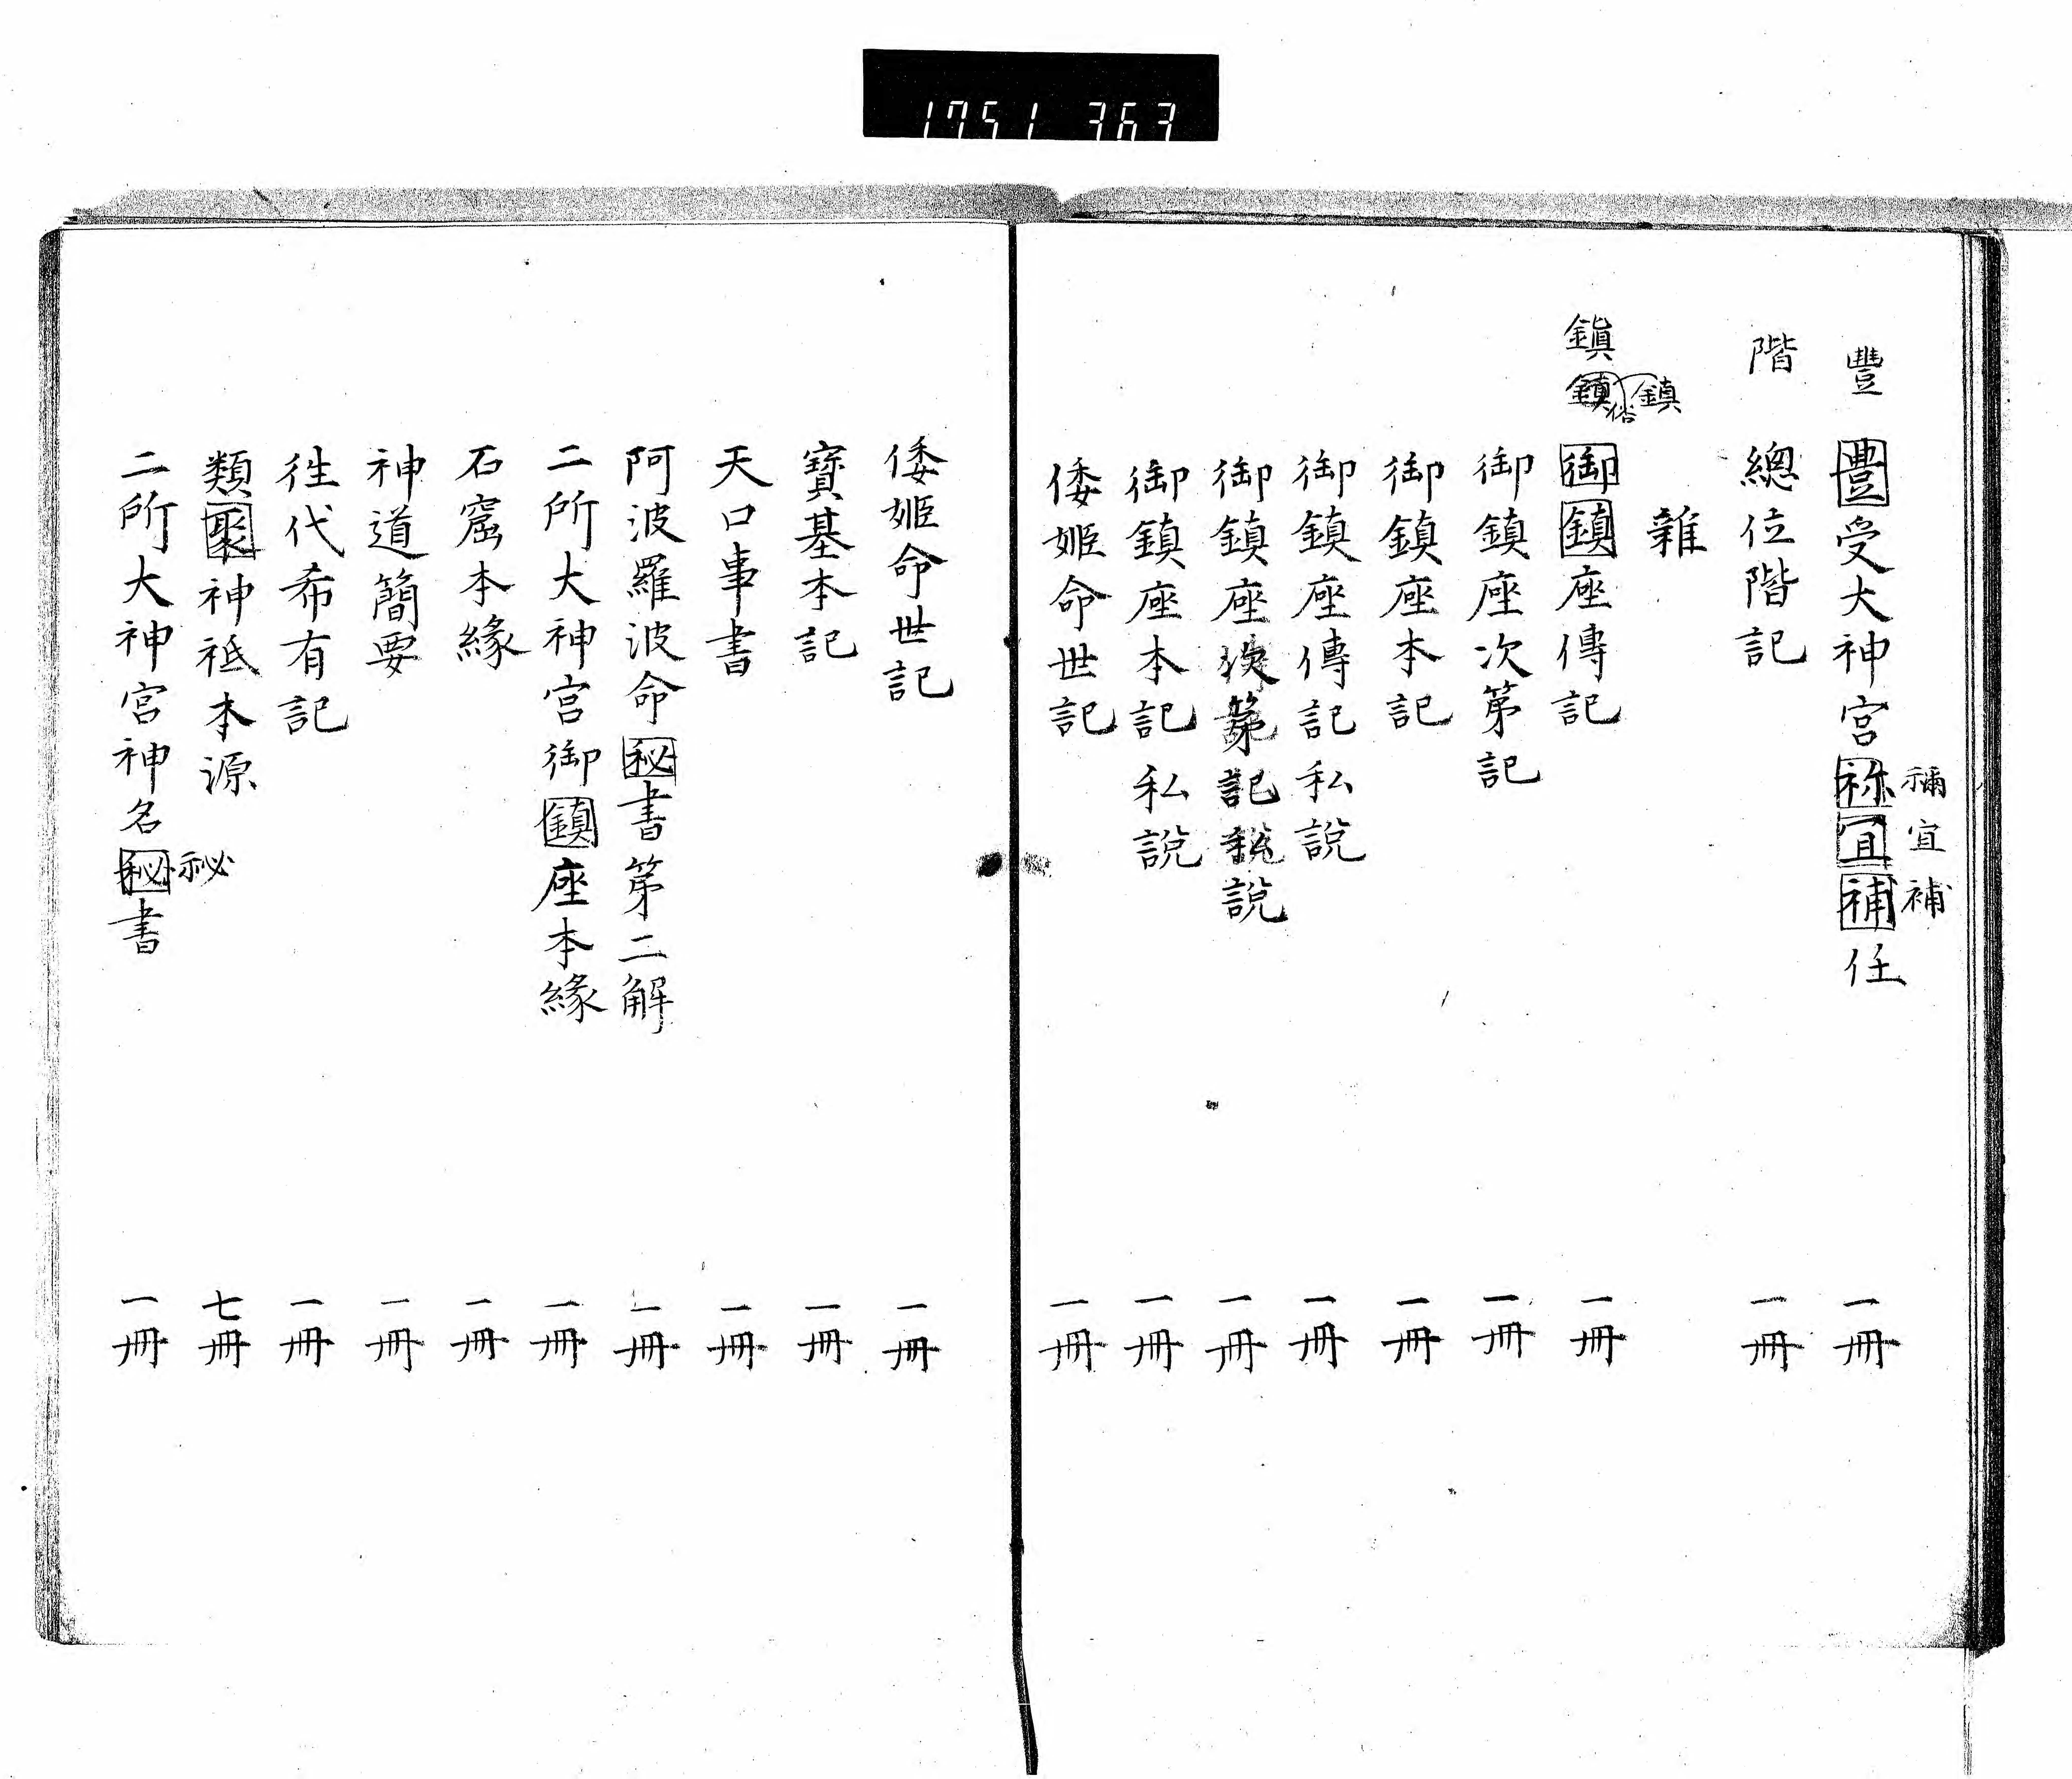 1751 363
豐
豊受大神宮祢宜補任 一冊
禰宜補
階
總位階記 一冊
雜
鎭
鎮俗鎮
御鎮座傳記 一冊
御鎮座次第記 一冊
御鎮座本記 一冊
御鎮座傳記私說 一冊
御鎮座次第記私說 一冊
御鎮座本記私說 一冊
倭姬命世記 一冊
倭姬命世記 一冊
寶基本記 一冊
天口事書 一冊
阿波羅波命秘書第二解 一冊
二所大神宮御鎮座本緣 一冊
石窟本緣 一冊
神道簡要 一冊
往代希有記 一冊
類聚神祇本源 七冊
二所大神宮神名秘書 一冊
祕